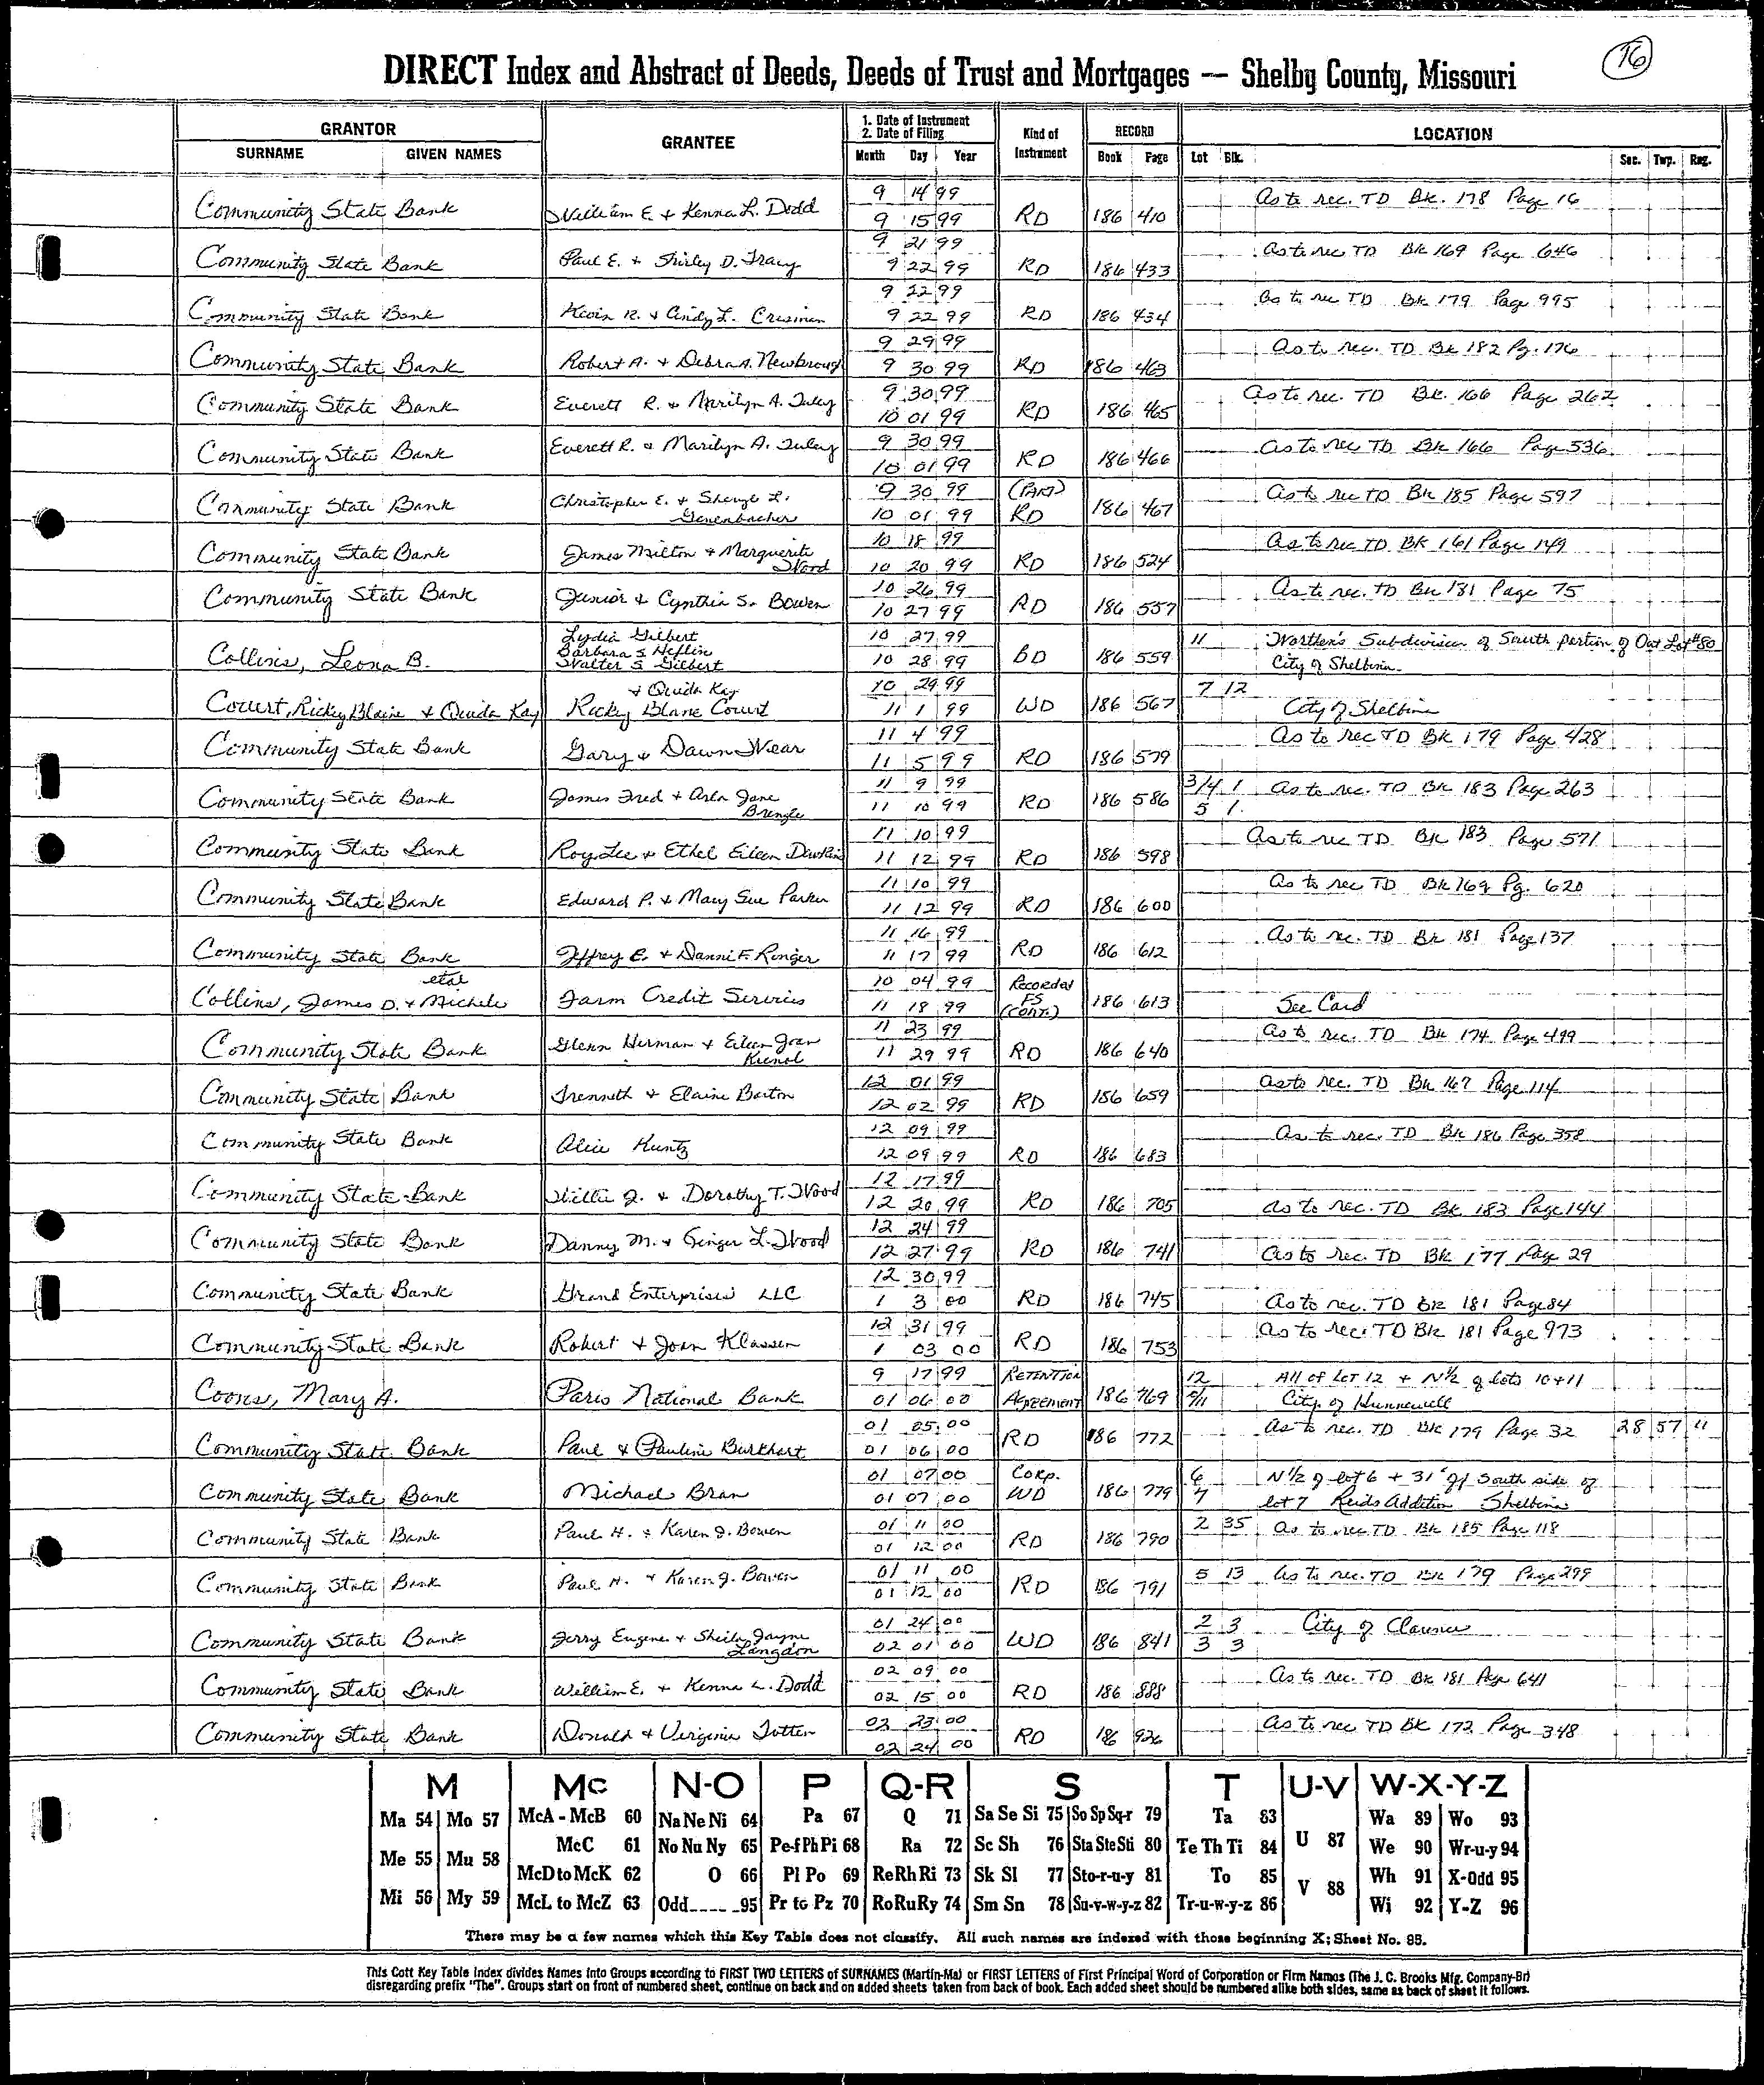 16
DIRECT Index and Abstract of Deeds, Deeds of Trust and Mortgages — Shelby County, Missouri
GRANTOR GRANTEE 1. Date of Instrument 2. Date of Filing Kind of Instrument RECORD LOCATION
SURNAME GIVEN NAMES Month Day Year Book Page Lot Blk. Sec. Twp. Rng.
Community State Bank William E. + Kenna L. Dodd 9 14 99 9 15 99 RD 186 410 As to rec. TD Bk. 178 Page 16
Community State Bank Paul E. + Shirley D. Tracy 9 21 99 9 22 99 RD 186 433 As to rec TD Bk 169 Page 646
Community State Bank Kevin R. + Cindy L. Cresiman 9 22 99 9 22 99 RD 186 434 As to rec TD Bk 179 Page 995
Community State Bank Robert A. + Debra A. Newbrough 9 29 99 9 30 99 RD 186 463 As to rec. TD Bk 182 Pg. 176
Community State Bank Everett R. + Marilyn A. Tuley 9 30 99 10 01 99 RD 186 465 As to rec. TD Bk. 166 Page 262
Community State Bank Everett R. + Marilyn A. Tuley 9 30 99 10 01 99 RD 186 466 As to rec TD Bk 166 Page 536
Community State Bank Christopher E. + Sheryl L. Genenbacher 9 30 99 10 01 99 (PART) RD 186 467 As to rec TD Bk 185 Page 597
Community State Bank James Milton + Marguerite Wood 10 18 99 10 20 99 RD 186 524 As to rec TD Bk 161 Page 149
Community State Bank Junior + Cynthia S. Bowen 10 26 99 10 27 99 RD 186 557 As to rec. TD Bk 181 Page 75
Collins, Leona B. Lydia Gilbert Barbara S Heflin Walter S Gilbert 10 27 99 10 28 99 BD 186 559 11 Subdivision of South portion of Out Lot #80 City of Shelbina
Court, Ricky Blaine + Quida Kay Ricky Blane Court + Quida Kay 10 29 99 11 1 99 WD 186 567 7 12 City of Shelbina
Community State Bank Gary + Dawn Wear 11 4 99 11 5 99 RD 186 579 As to rec TD Bk 179 Page 428
Community State Bank James Fred + Arla Jane Brengle 11 9 99 11 10 99 RD 186 586 3/4 1 5 1 As to rec. TD Bk 183 Page 263
Community State Bank Roy Lee + Ethel Eileen Dawkins 11 10 99 11 12 99 RD 186 598 As to rec TD Bk 183 Page 571
Community State Bank Edward P. + Mary Sue Parker 11 10 99 11 12 99 RD 186 600 As to rec TD Bk 169 Pg. 620
Community State Bank Jeffrey E. + Danni F. Ringer 11 16 99 11 17 99 RD 186 612 As to rec. TD Bk 181 Page 137
Collins, James D. + Michele etal Farm Credit Services 10 04 99 11 18 99 Recorded FS (CONT.) 186 613 See Card
Community State Bank Glenn Herman + Eileen Joan 11 23 99 11 29 99 RD 186 640 As to rec. TD Bk 174 Page 499
Community State Bank Trenneth + Elaine Barton 12 01 99 12 02 99 RD 186 659 As to rec. TD Bk 167 Page 114
Community State Bank Alice Kuntz 12 09 99 12 09 99 RD 186 683 As to rec. TD Bk 186 Page 358
Community State Bank Willie J. + Dorothy T. Wood 12 17 99 12 20 99 RD 186 705 As to rec. TD Bk 183 Page 144
Community State Bank Danny M. + Ginger L. Wood 12 24 99 12 27 99 RD 186 741 As to rec. TD Bk 177 Page 29
Community State Bank Grand Enterprises LLC 12 30 99 1 3 00 RD 186 745 As to rec. TD Bk 181 Page 84
Community State Bank Robert + Joan Klassen 12 31 99 1 03 00 RD 186 753 As to rec. TD Bk 181 Page 973
Coons, Mary A. Paris National Bank 9 17 99 01 06 00 RETENTION AGREEMENT 186 769 12 All of LOT 12 + N½ of lots 10+11 City of Hunnewell
Community State Bank Paul + Pauline Burkhart 01 05 00 01 06 00 RD 186 772 As to rec. TD Bk 179 Page 32 28 57 11
Community State Bank Michael Bran 01 07 00 01 07 00 Corp. WD 186 779 6 7 N½ of lot 6 + 31' of South side of lot 7 Reids Addition Shelbina
Community State Bank Paul H. + Karen J. Bowen 01 11 00 01 12 00 RD 186 790 2 35 As to rec TD Bk 185 Page 118
Community State Bank Paul H. + Karen J. Bowen 01 11 00 01 12 00 RD 186 791 5 13 As to rec. TD Bk 179 Page 299
Community State Bank Jerry Eugene + Sheila Jayne Langdon 01 24 00 02 01 00 WD 186 841 2 3 3 3 City of Clarence
Community State Bank William E. + Kenna L. Dodd 02 09 00 02 15 00 RD 186 888 As to rec. TD Bk 181 Page 641
Community State Bank Donald + Virginia Totten 02 23 00 02 24 00 RD 186 926 As to rec TD Bk 172 Page 348
M Mc N-O P Q-R S T U-V W-X-Y-Z
Ma 54 Mo 57 McA - McB 60 Na Ne Ni 64 Pa 67 Q 71 Sa Se Si 75 So Sp Sq-r 79 Ta 83 U 87 Wa 89 Wo 93
Me 55 Mu 58 McC 61 No Nu Ny 65 Pe-f Ph Pi 68 Ra 72 Sc Sh 76 Sta Ste Sti 80 Te Th Ti 84 We 90 Wr-u-y 94
McD to McK 62 O 66 Pl Po 69 Re Rh Ri 73 Sk Sl 77 Sto-r-u-y 81 To 85 V 88 Wh 91 X-Odd 95
Mi 56 My 59 McL to McZ 63 Odd____95 Pr to Pz 70 Ro Ru Ry 74 Sm Sn 78 Su-v-w-y-z 82 Tr-u-w-y-z 86 Wi 92 Y-Z 96
There may be a few names which this Key Table does not classify. All such names are indexed with those beginning X; Sheet No. 95.
This Cott Key Table Index divides Names into Groups according to FIRST TWO LETTERS of SURNAMES (Martin-Ma) or FIRST LETTERS of First Principal Word of Corporation or Firm Names (The J. C. Brooks Mfg. Company-Br)
disregarding prefix "The". Groups start on front of numbered sheet, continue on back and on added sheets taken from back of book. Each added sheet should be numbered alike both sides, same as back of sheet it follows.